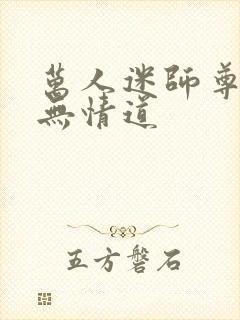 萬人迷師尊
無情道
五方磐石